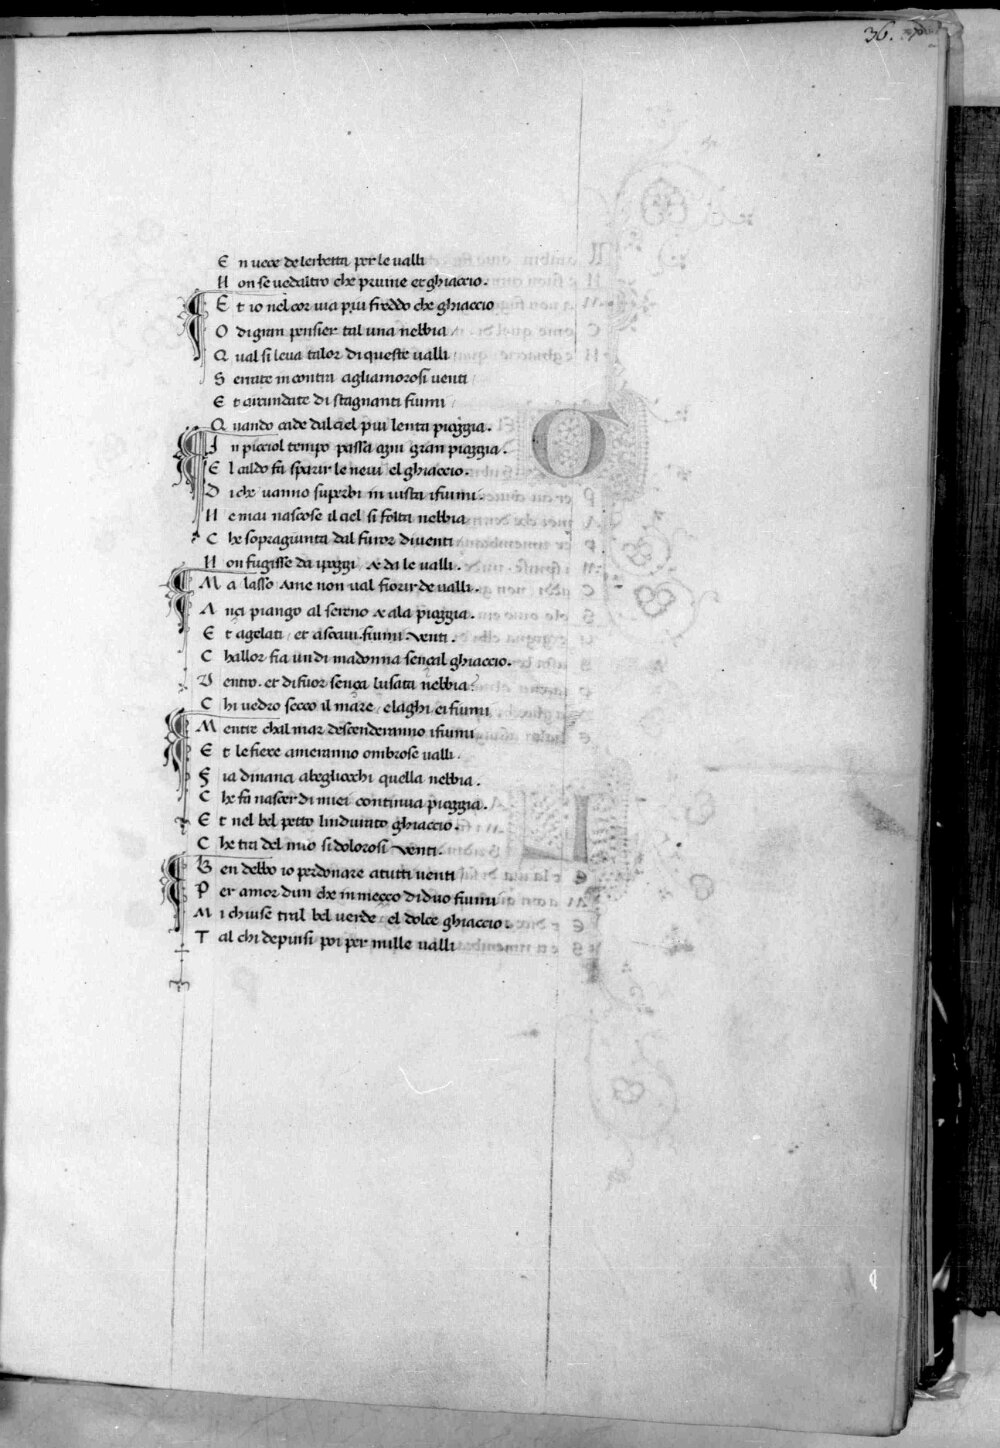 36.
E n uece de lerbetta per le ualli
N on se uedaltro che pruine et ghiaccio.
E t io nel cor uia piu freddo che ghiaccio
O di gran pensier tal una nebbia
Q ual si leua talor di queste ualli
S errate incontra agliamorosi uenti
E t circundate di stagnanti fiumi
Q uando cade dal ciel piu lenta pioggia.
I n picciol tempo passa ogni gran pioggia.
E l caldo fa sparir le neui el ghiaccio.
D i che uanno superbi in uista ifiumi.
N e mai nascose il ciel si folta nebbia
C he sopragiunta dal furor diuenti
N on fugisse da ipoggi & da le ualli.
M a lasso ame non ual fiorir de ualli.
A nçi piango al sereno & ala pioggia.
E t agelati et asoaui. fiumi. uenti.
C hallor fia un di madonna sençal ghiaccio.
D entro. et difuor sença lusata nebbia
C hi uedro secco il mare elaghi ei fiumi
M entre chal mar descenderanno ifiumi
E t le fiere ameranno ombrose ualli.
F ia dinanci abegliocchi quella nebbia.
C he fa nascer di miei continua pioggia.
E t nel bel petto lindurato ghiaccio.
C he tra del mio si dolorosi uenti.
B en debbo io perdonare atutti uenti
P er amor dun che in mecço di duo fiumi
M i chiuse tral bel uerde el dolce ghiaccio.
T al chi depinsi poi per mille ualli